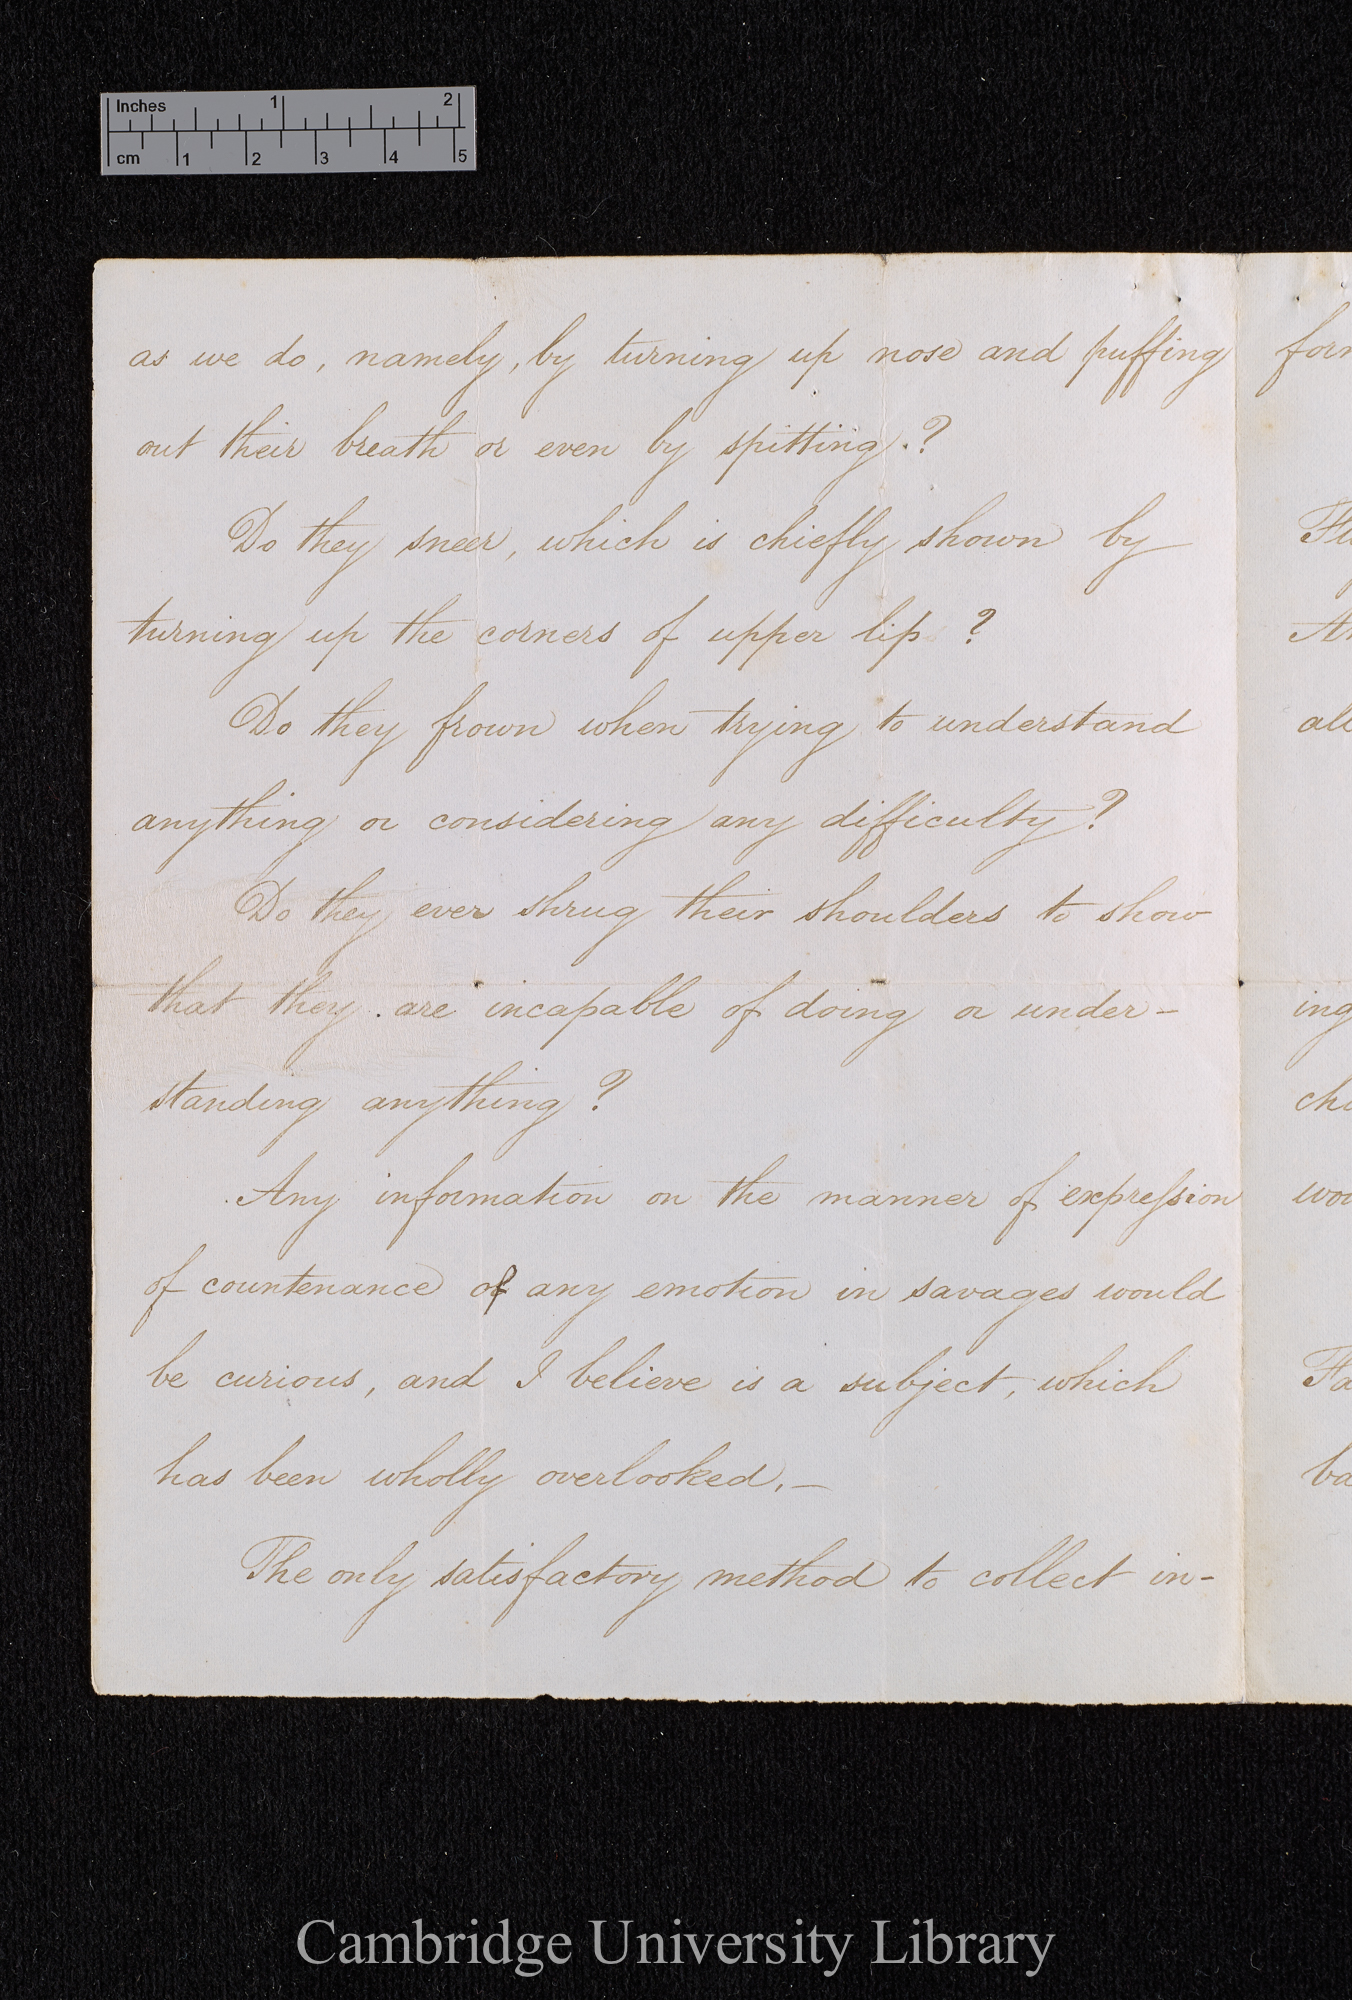 Inches 1 2
cm 1 2 3 4 5
as we do, namely, by turning up nose and puffing
out their breath or even by spitting.?
Do they sneer, which is chiefly shown by
turning up the corners of upper lip ?
Do they frown when trying to understand
anything or considering any difficulty?
Do they ever shrug their shoulders to show
that they are incapable of doing or under-
standing anything?
Any information on the manner of expression
of countenance of any emotion in savages would
be curious, and I believe is a subject, which
has been wholly overlooked.—
The only satisfactory method to collect in-
ing
Cambridge University Library